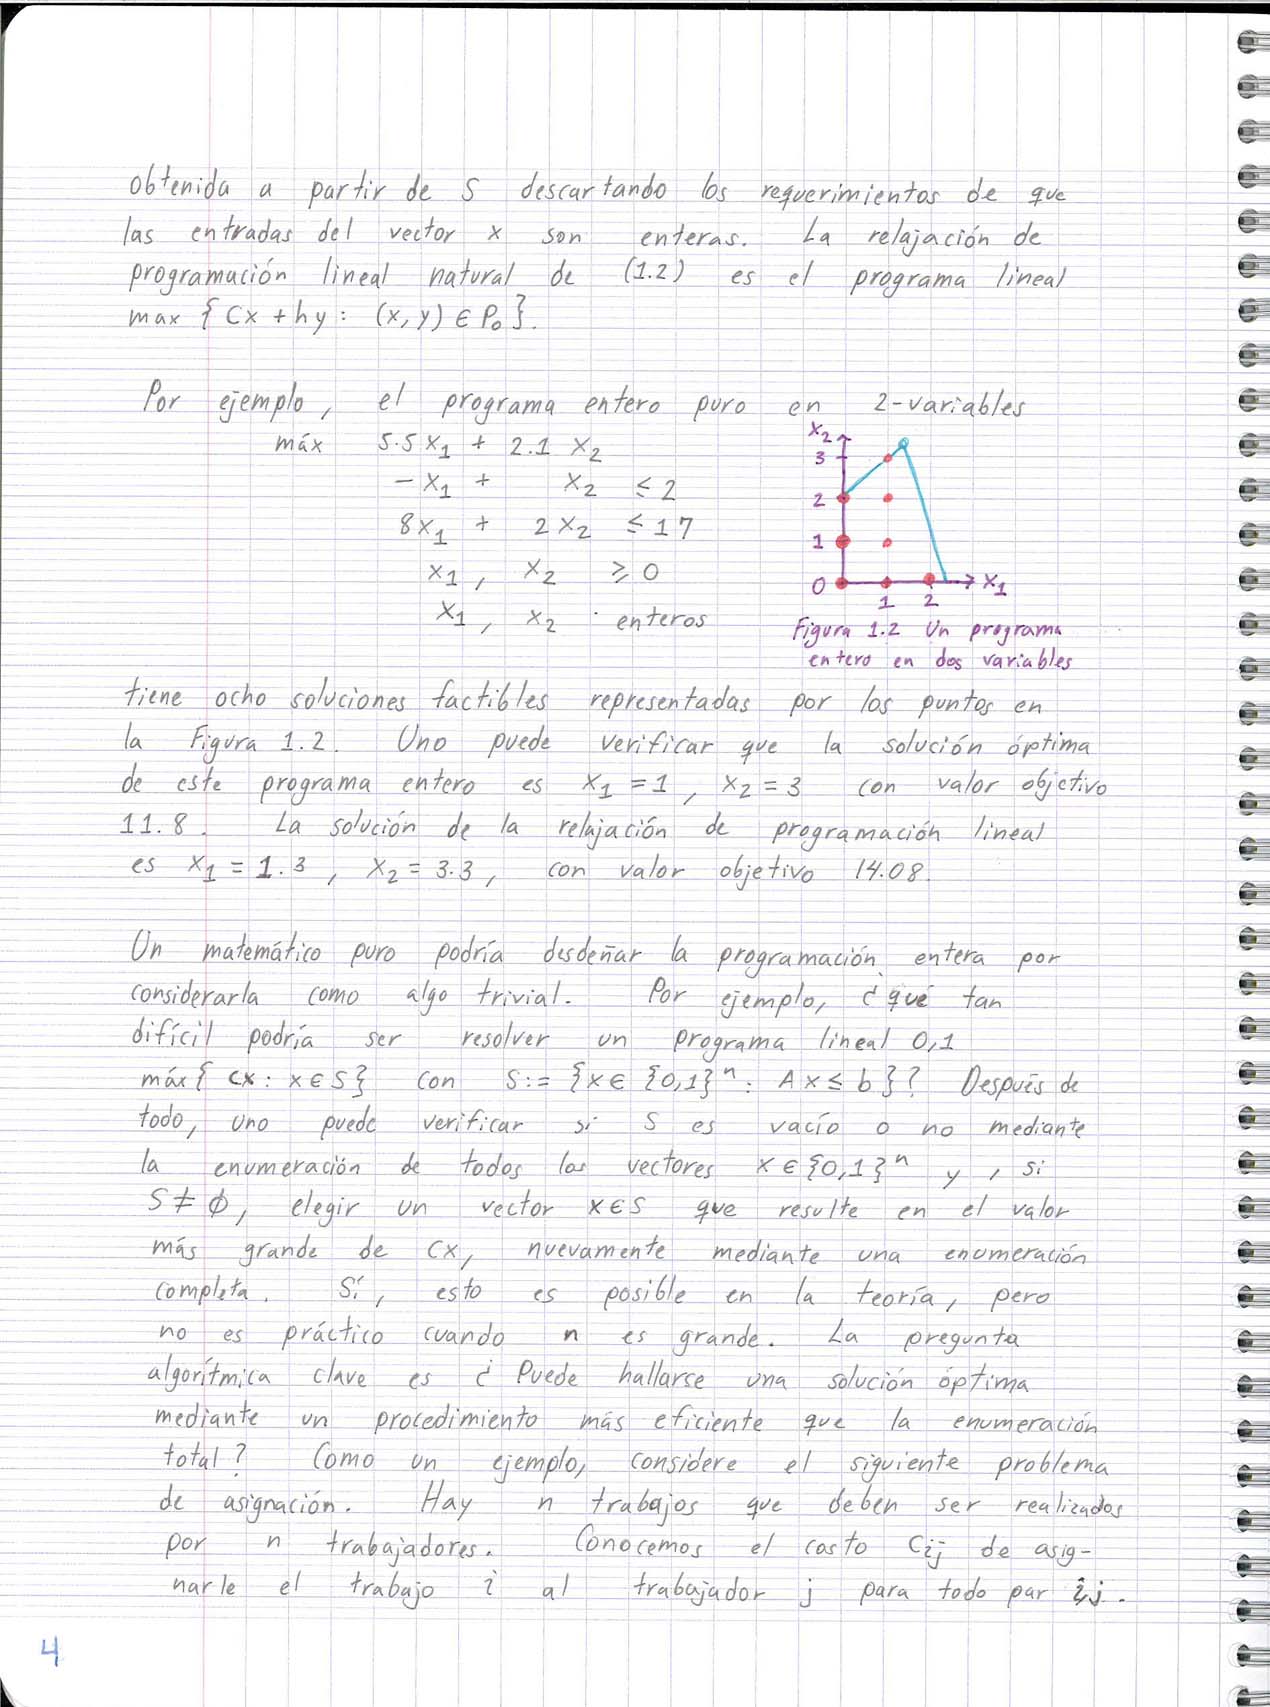 obtenida a partir de S descartando los requerimientos de que
las entradas del vector x son enteras. La relajación de
programación lineal natural de (1.2) es el programa lineal
max { Cx + hy : (x, y) ∈ P₀ }.
Por ejemplo, el programa entero puro en 2-variables
máx 5.5 x₁ + 2.1 x₂
- x₁ + x₂ ≤ 2
8x₁ + 2x₂ ≤ 17
x₁, x₂ ≥ 0
x₁, x₂ enteros
x₂
3
2
1
0
x₁
1 2
Figura 1.2 Un programa
entero en dos variables
tiene ocho soluciones factibles representadas por los puntos en
la Figura 1.2. Uno puede verificar que la solución óptima
de este programa entero es x₁ = 1, x₂ = 3 con valor objetivo
11.8. La solución de la relajación de programación lineal
es x₁ = 1.3, x₂ = 3.3, con valor objetivo 14.08.
Un matemático puro podría desdeñar la programación entera por
considerarla como algo trivial. Por ejemplo, ¿qué tan
difícil podría ser resolver un programa lineal 0,1
máx{ cx : x ∈ S} con S := {x ∈ {0,1}ⁿ : Ax ≤ b}? Después de
todo, uno puede verificar si S es vacío o no mediante
la enumeración de todos los vectores x ∈ {0,1}ⁿ y, si
S ≠ ∅, elegir un vector x ∈ S que resulte en el valor
más grande de cx, nuevamente mediante una enumeración
completa. Sí, esto es posible en la teoría, pero
no es práctico cuando n es grande. La pregunta
algorítmica clave es ¿Puede hallarse una solución óptima
mediante un procedimiento más eficiente que la enumeración
total? Como un ejemplo, considere el siguiente problema
de asignación. Hay n trabajos que deben ser realizados
por n trabajadores. Conocemos el costo Cij de asig-
narle el trabajo i al trabajador j para todo par i,j.
4